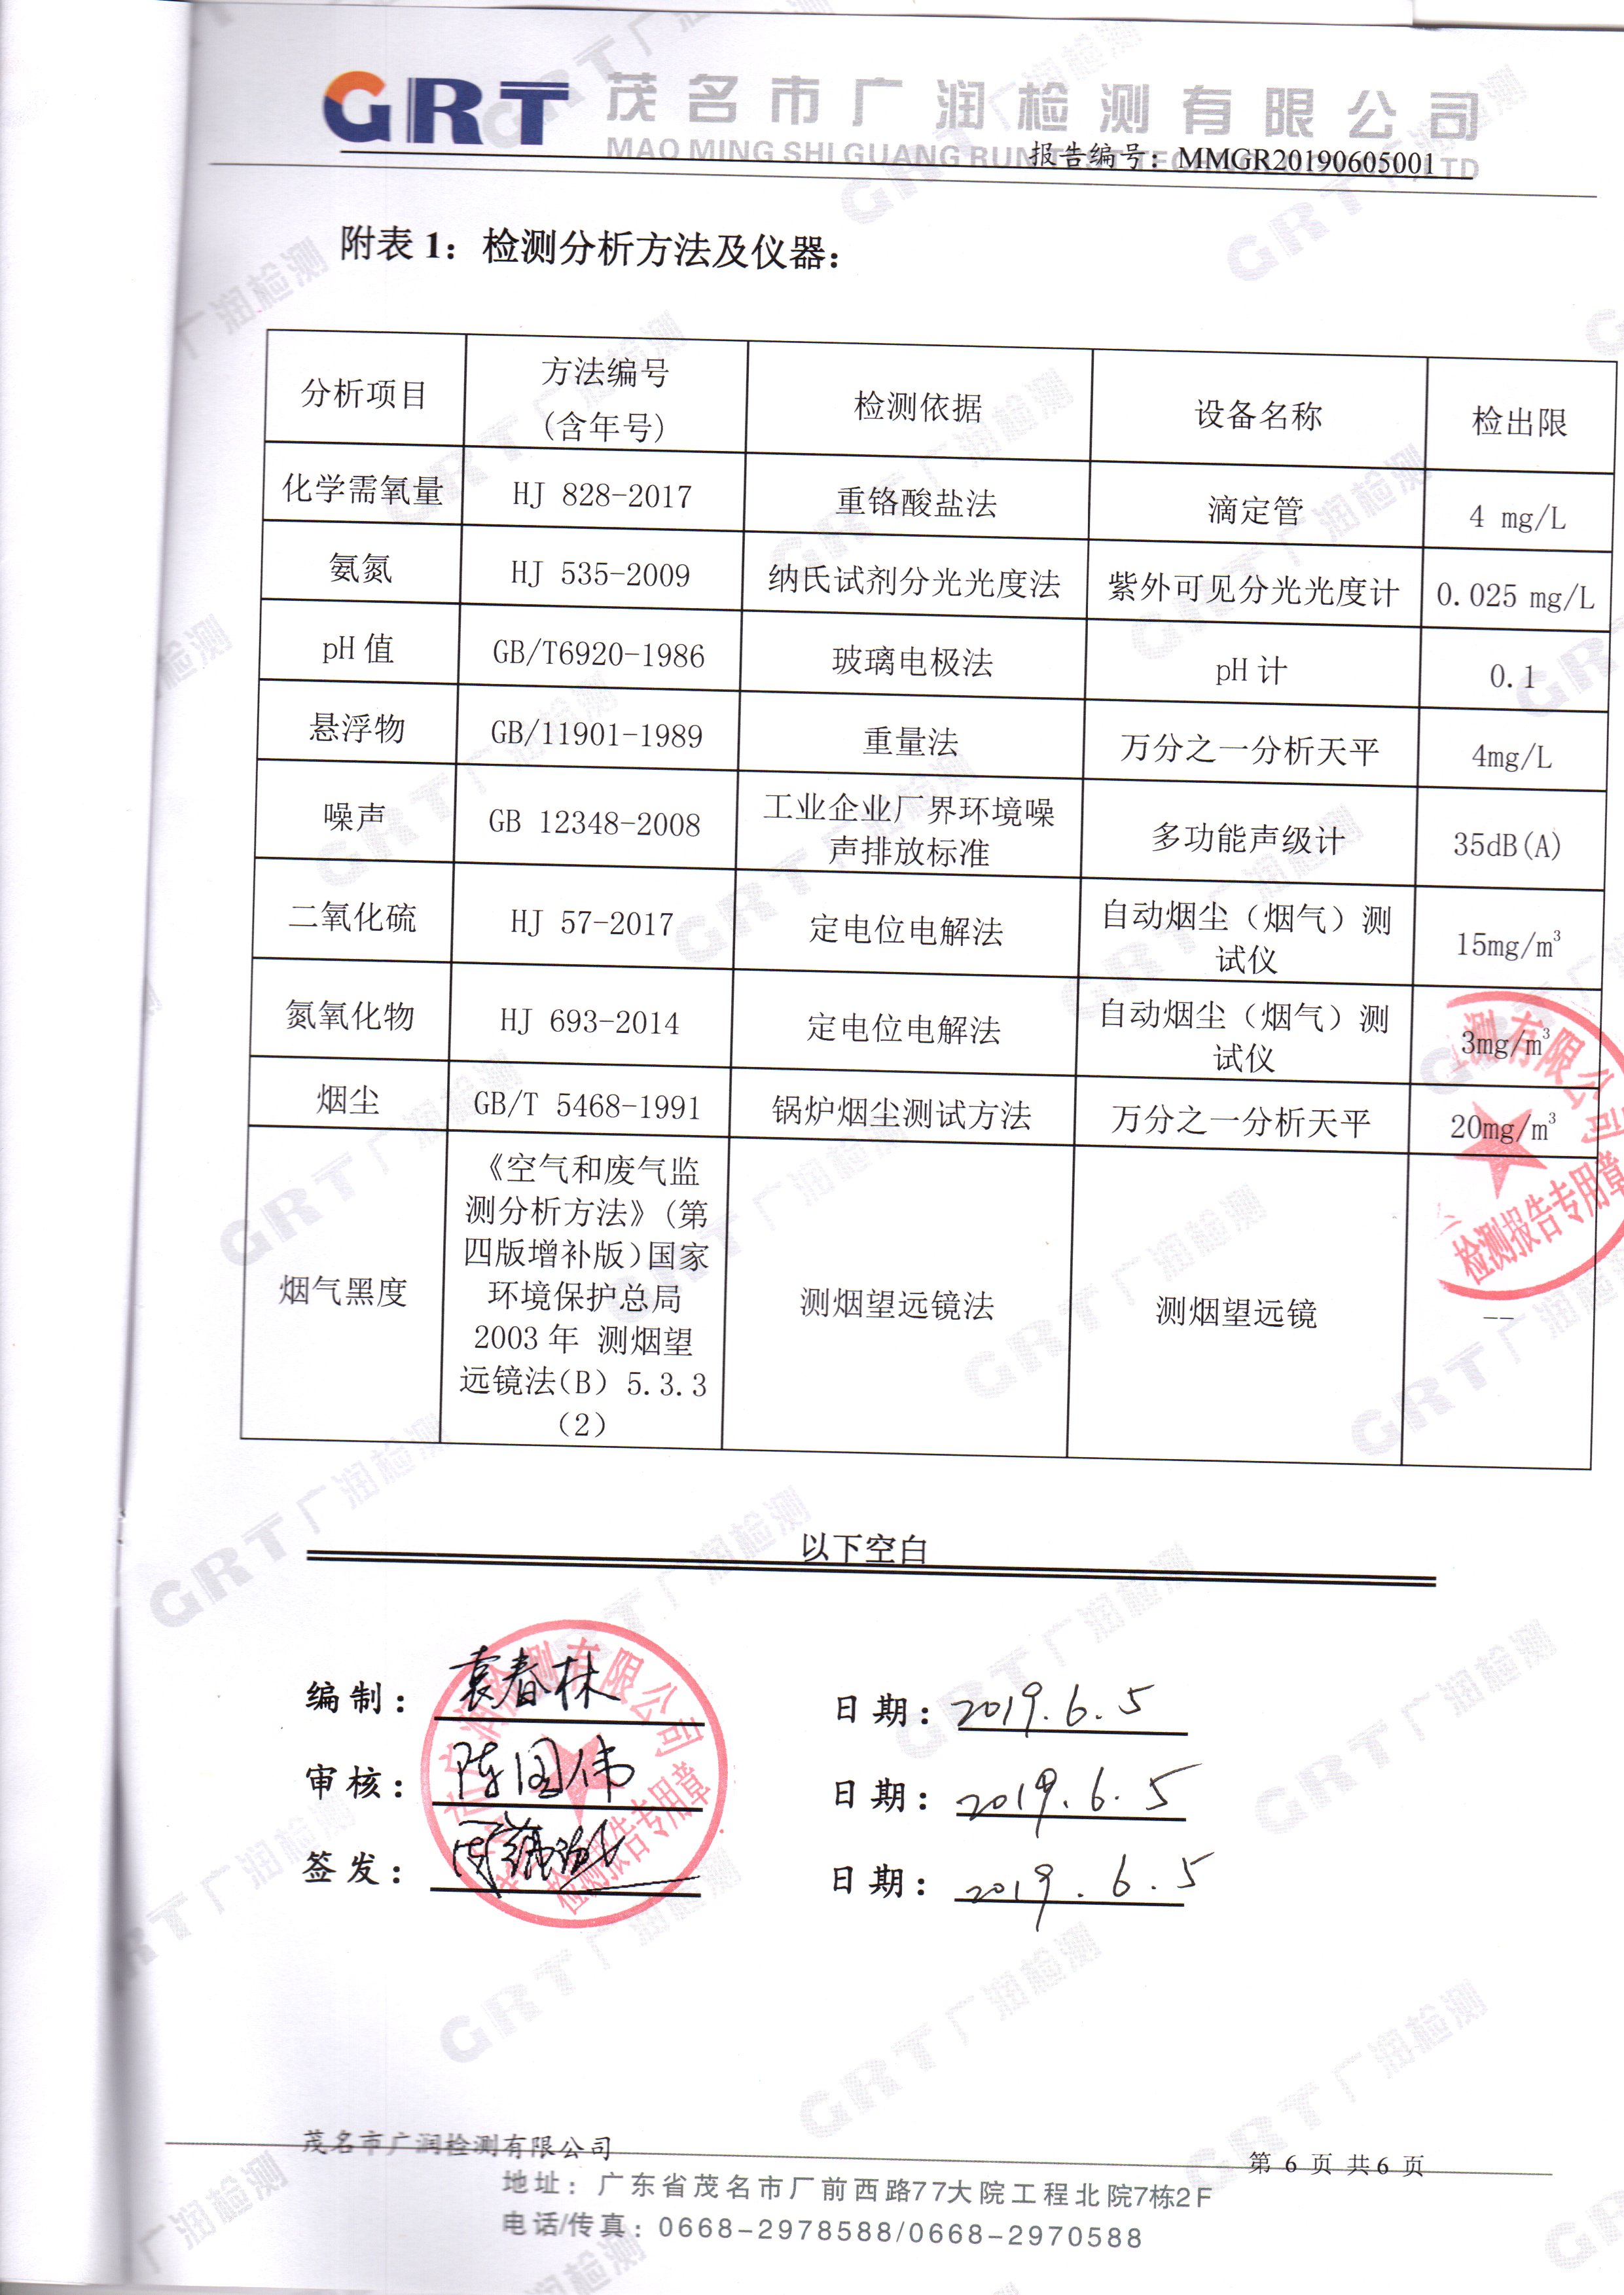 GRT 茂名市广润检测有限公司
MAO MING SHI GUANG RUN TEST TECH LTD
报告编号：MMGR20190605001
附表 1：检测分析方法及仪器：
分析项目 方法编号 检测依据 设备名称 检出限
(含年号)
化学需氧量 HJ 828-2017 重铬酸盐法 滴定管 4 mg/L
氨氮 HJ 535-2009 纳氏试剂分光光度法 紫外可见分光光度计 0.025 mg/L
pH 值 GB/T6920-1986 玻璃电极法 pH 计 0.1
悬浮物 GB/11901-1989 重量法 万分之一分析天平 4mg/L
噪声 GB 12348-2008 工业企业厂界环境噪 多功能声级计 35dB(A)
声排放标准
二氧化硫 HJ 57-2017 定电位电解法 自动烟尘（烟气）测 15mg/m³
试仪
氮氧化物 HJ 693-2014 定电位电解法 自动烟尘（烟气）测 3mg/m³
试仪
烟尘 GB/T 5468-1991 锅炉烟尘测试方法 万分之一分析天平 20mg/m³
《空气和废气监
测分析方法》(第
四版增补版)国家
烟气黑度 环境保护总局 测烟望远镜法 测烟望远镜 --
2003 年 测烟望
远镜法(B) 5.3.3
(2)
测有限公司
检测报告专用章
以下空白
编制： 袁春林 日期：2019.6.5
审核： 陈国伟 日期：2019.6.5
签发： 日期：2019.6.5
市广润检测有限公司
检测报告专用章
茂名市广润检测有限公司
第 6 页 共 6 页
地址：广东省茂名市厂前西路77大院工程北院7栋2F
电话/传真：0668-2978588/0668-2970588